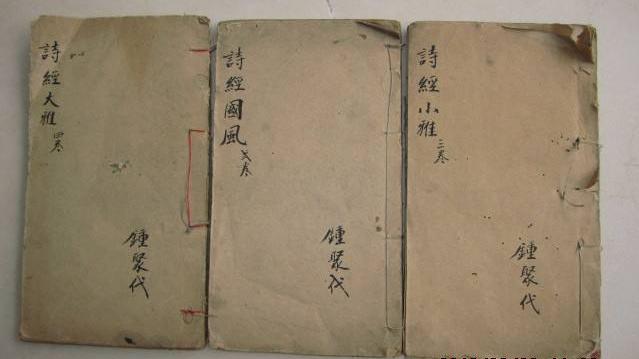 詩經大雅
四卷
鍾聚代
詩經國風
卷
鍾聚代
詩經小雅
三卷
鍾聚代